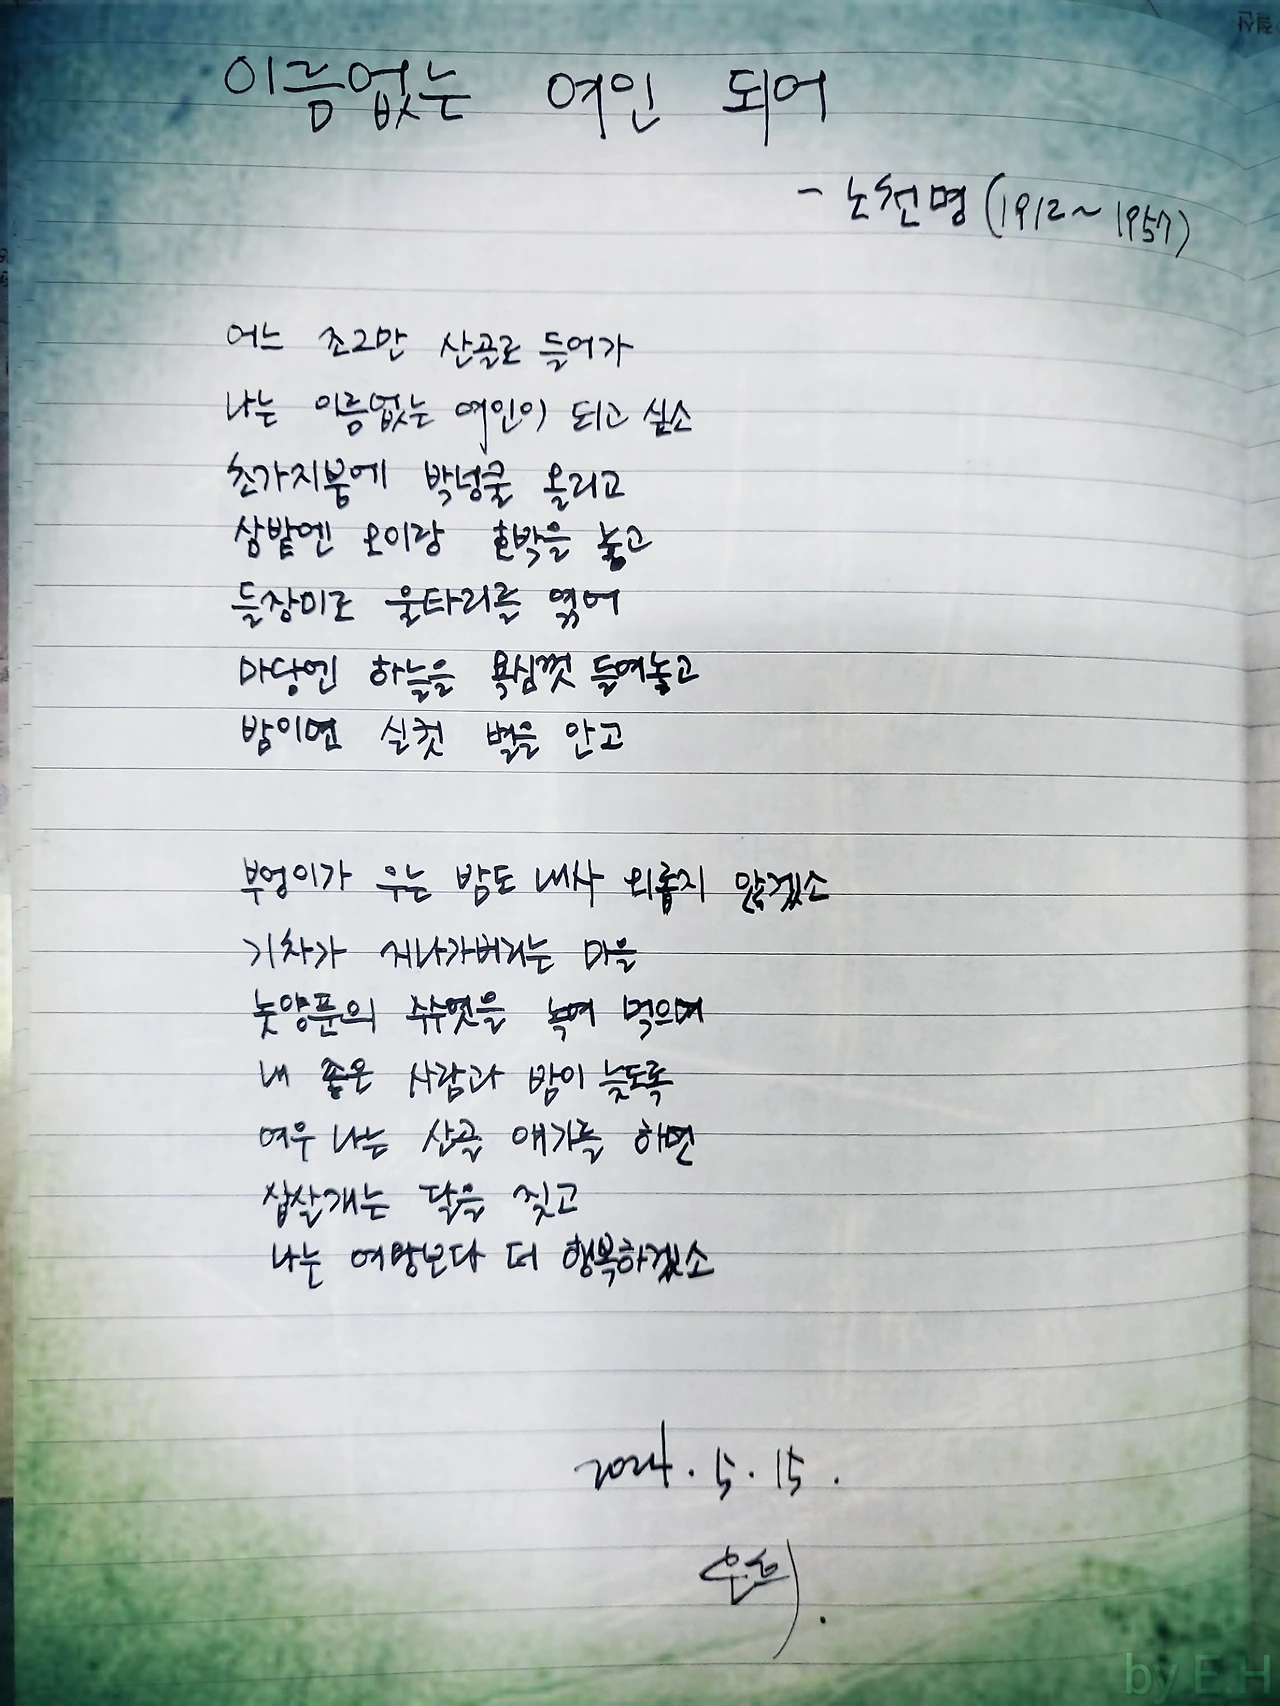 이름없는 여인 되어
- 노천명 (1912~1957)
어느 조그만 산골로 들어가
나는 이름없는 여인이 되고 싶소
초가지붕에 박넝쿨 올리고
삼밭엔 오이랑 호박을 놓고
들장미로 울타리를 엮어
마당엔 하늘을 욕심껏 들여놓고
밤이면 실컷 별을 안고
부엉이가 우는 밤도 내사 외롭지 않겠소
기차가 지나가버리는 마을
놋양푼의 수수엿을 녹여 먹으며
내 좋은 사람과 밤이 늦도록
여우 나는 산골 얘기를 하면
삽살개는 달을 짖고
나는 여왕보다 더 행복하겠소
2024. 5. 15.
by E.H